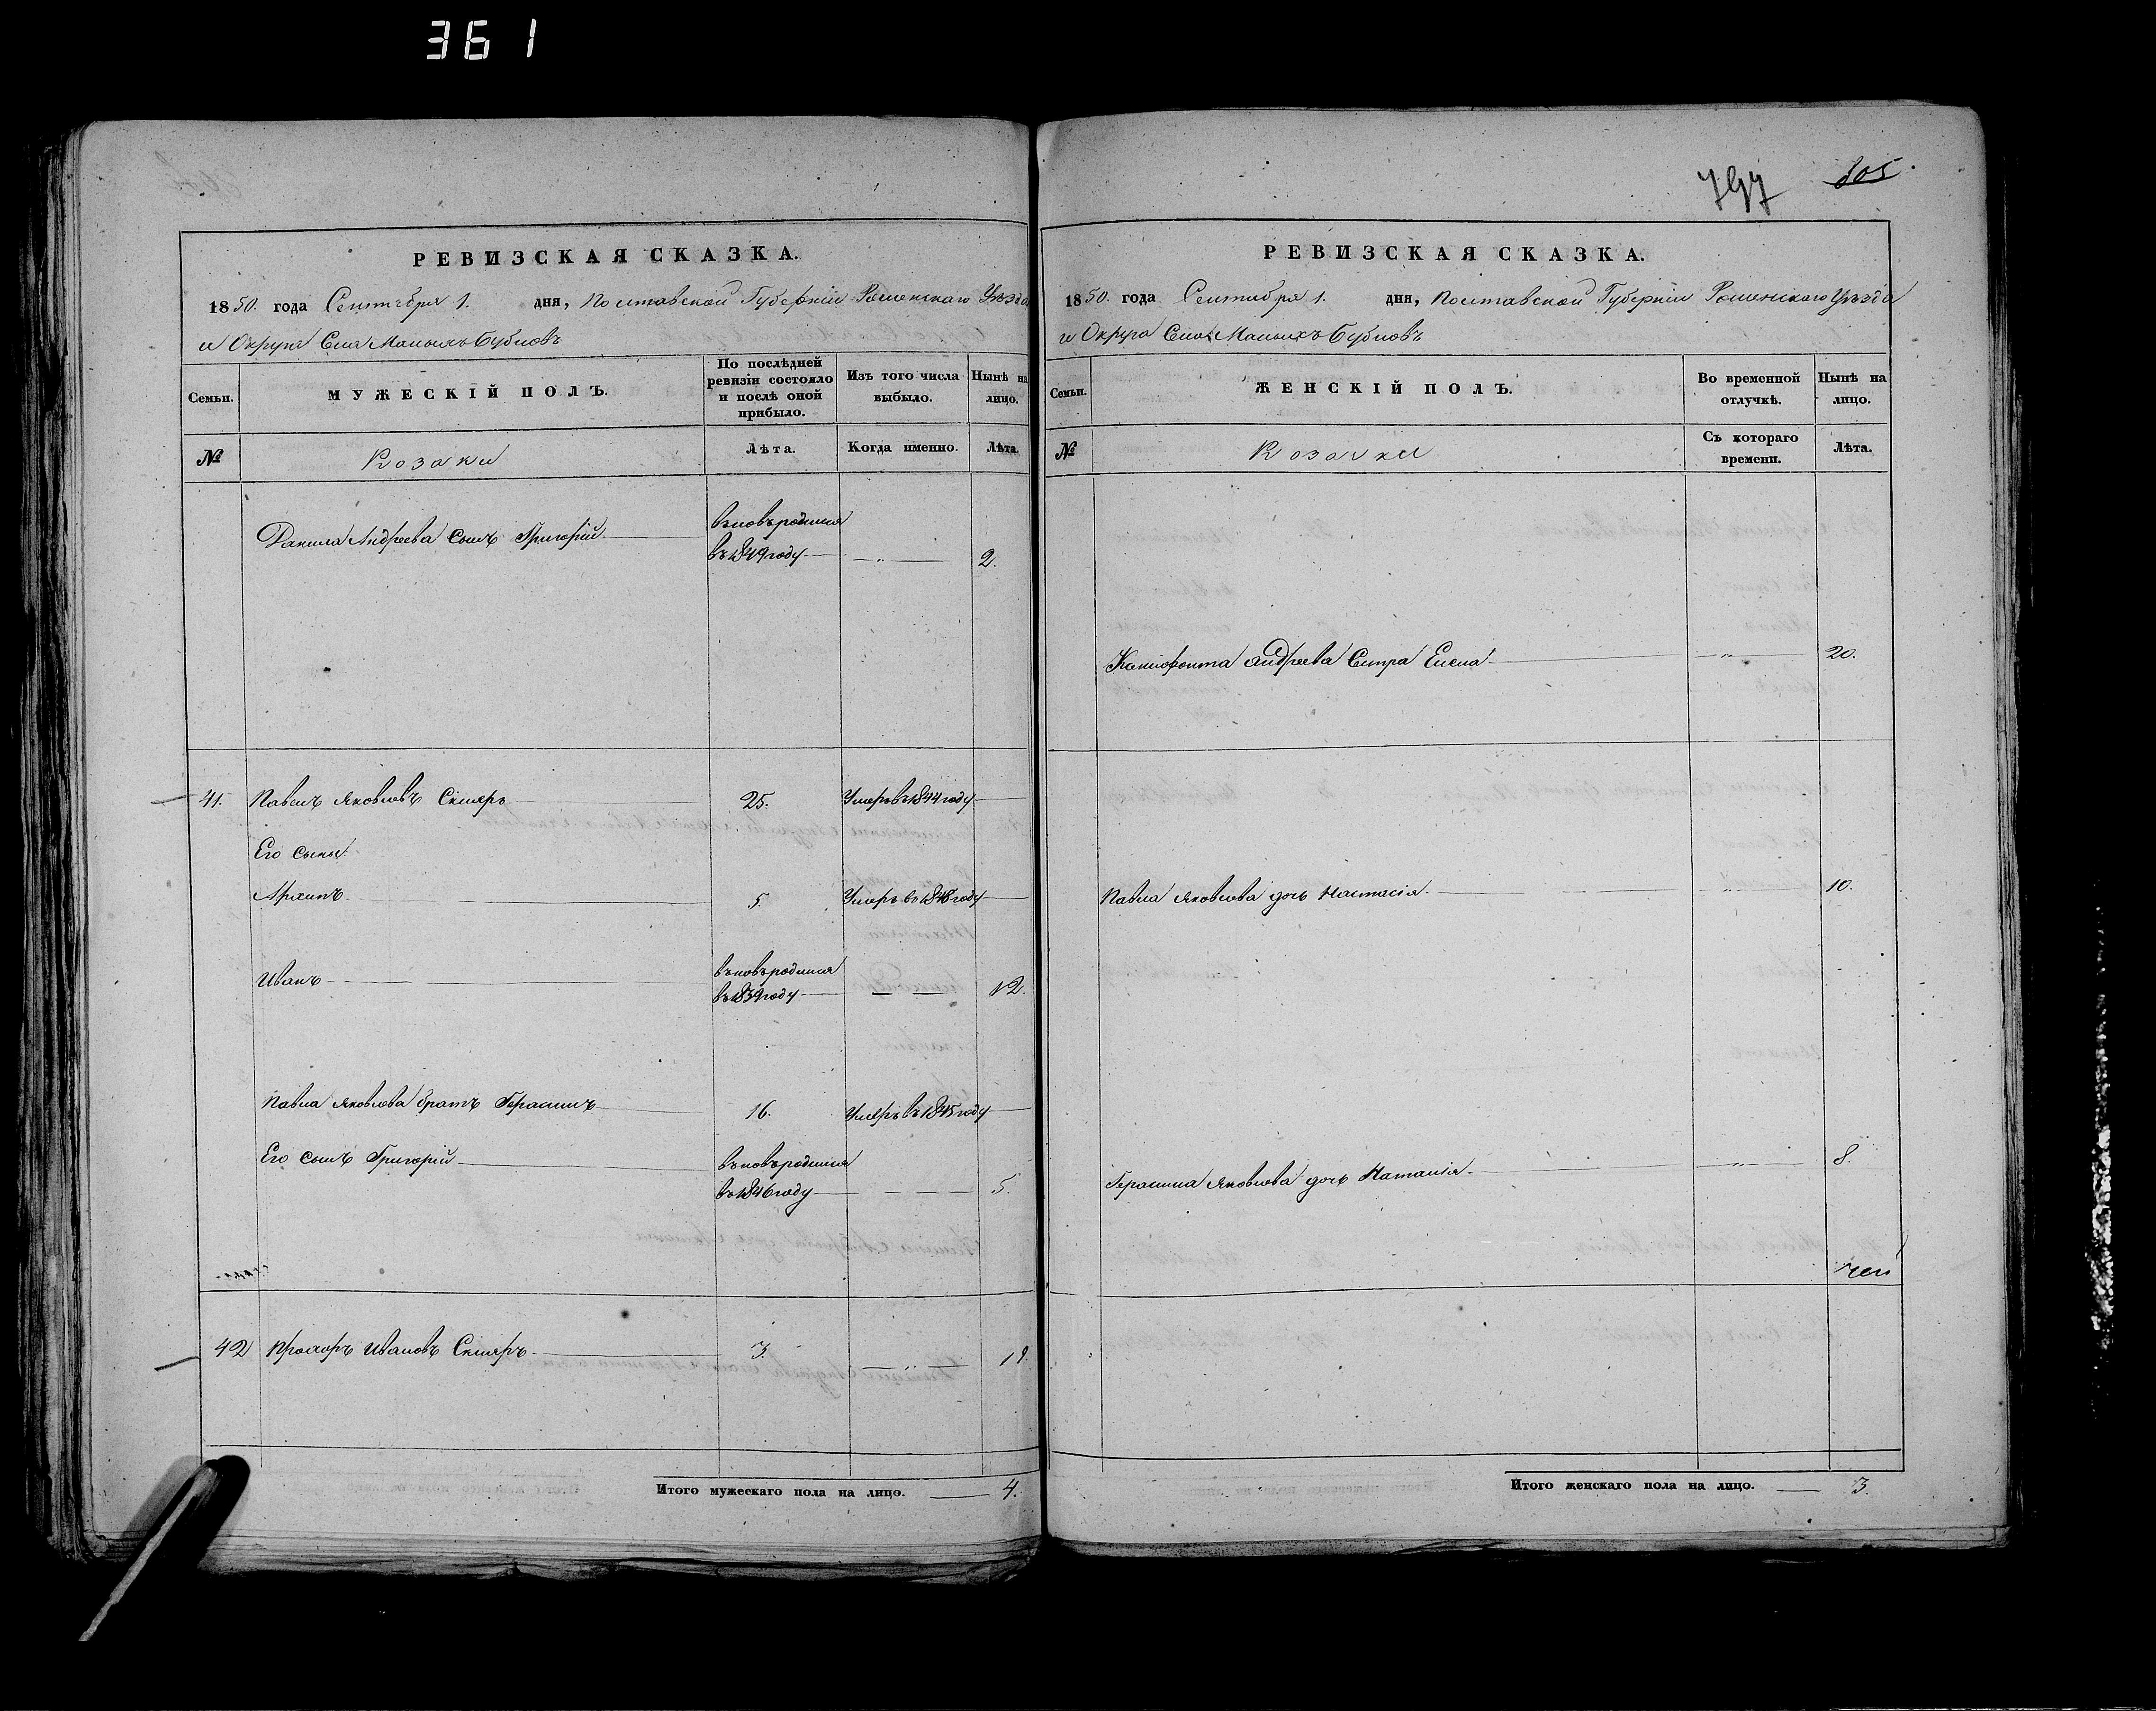 361
РЕВИЗСКАЯ СКАЗКА.
1850. года Сентября 1. дня, Полтавской Губерніи Роменскаго Уѣзда
и Округа Села Малыхъ Бубновъ
Семьи.
МУЖЕСКІЙ ПОЛЪ.
По послѣдней ревизіи состояло и послѣ оной прибыло.
Изъ того числа выбыло.
Нынѣ на лицо.
№
Козаки
Лѣта.
Когда именно.
Лѣта.
Данила Андреева сынъ Григорій вновьродился
въ 1849 году 2.
41. Павелъ Яковлевъ Скляръ 25. Умеръ въ 1844 году
Его сыны
Архипъ 5. Умеръ въ 1848 году
Иванъ вновьродился
въ 1839 году 12.
Павла Яковлева братъ Герасимъ 16. Умеръ въ 1845 году
Его сынъ Григорій вновьродился
въ 1846 году 5.
42 Прохоръ Ивановъ Скляръ 3. 19.
Итого мужескаго пола на лицо. 4.
797 805
РЕВИЗСКАЯ СКАЗКА.
1850. года Сентября 1. дня, Полтавской Губерніи Роменскаго Уѣзда
и Округа Села Малыхъ Бубновъ
Семьи.
ЖЕНСКІЙ ПОЛЪ.
Во временной отлучкѣ.
Нынѣ на лицо.
№
Козачки
Съ котораго времени.
Лѣта.
Ксенофонта Андреева Сестра Елена 20.
Павла Яковлева дочь Настасія 10.
Герасима Яковлева дочь Наталія 8.
Итого женскаго пола на лицо. 3.